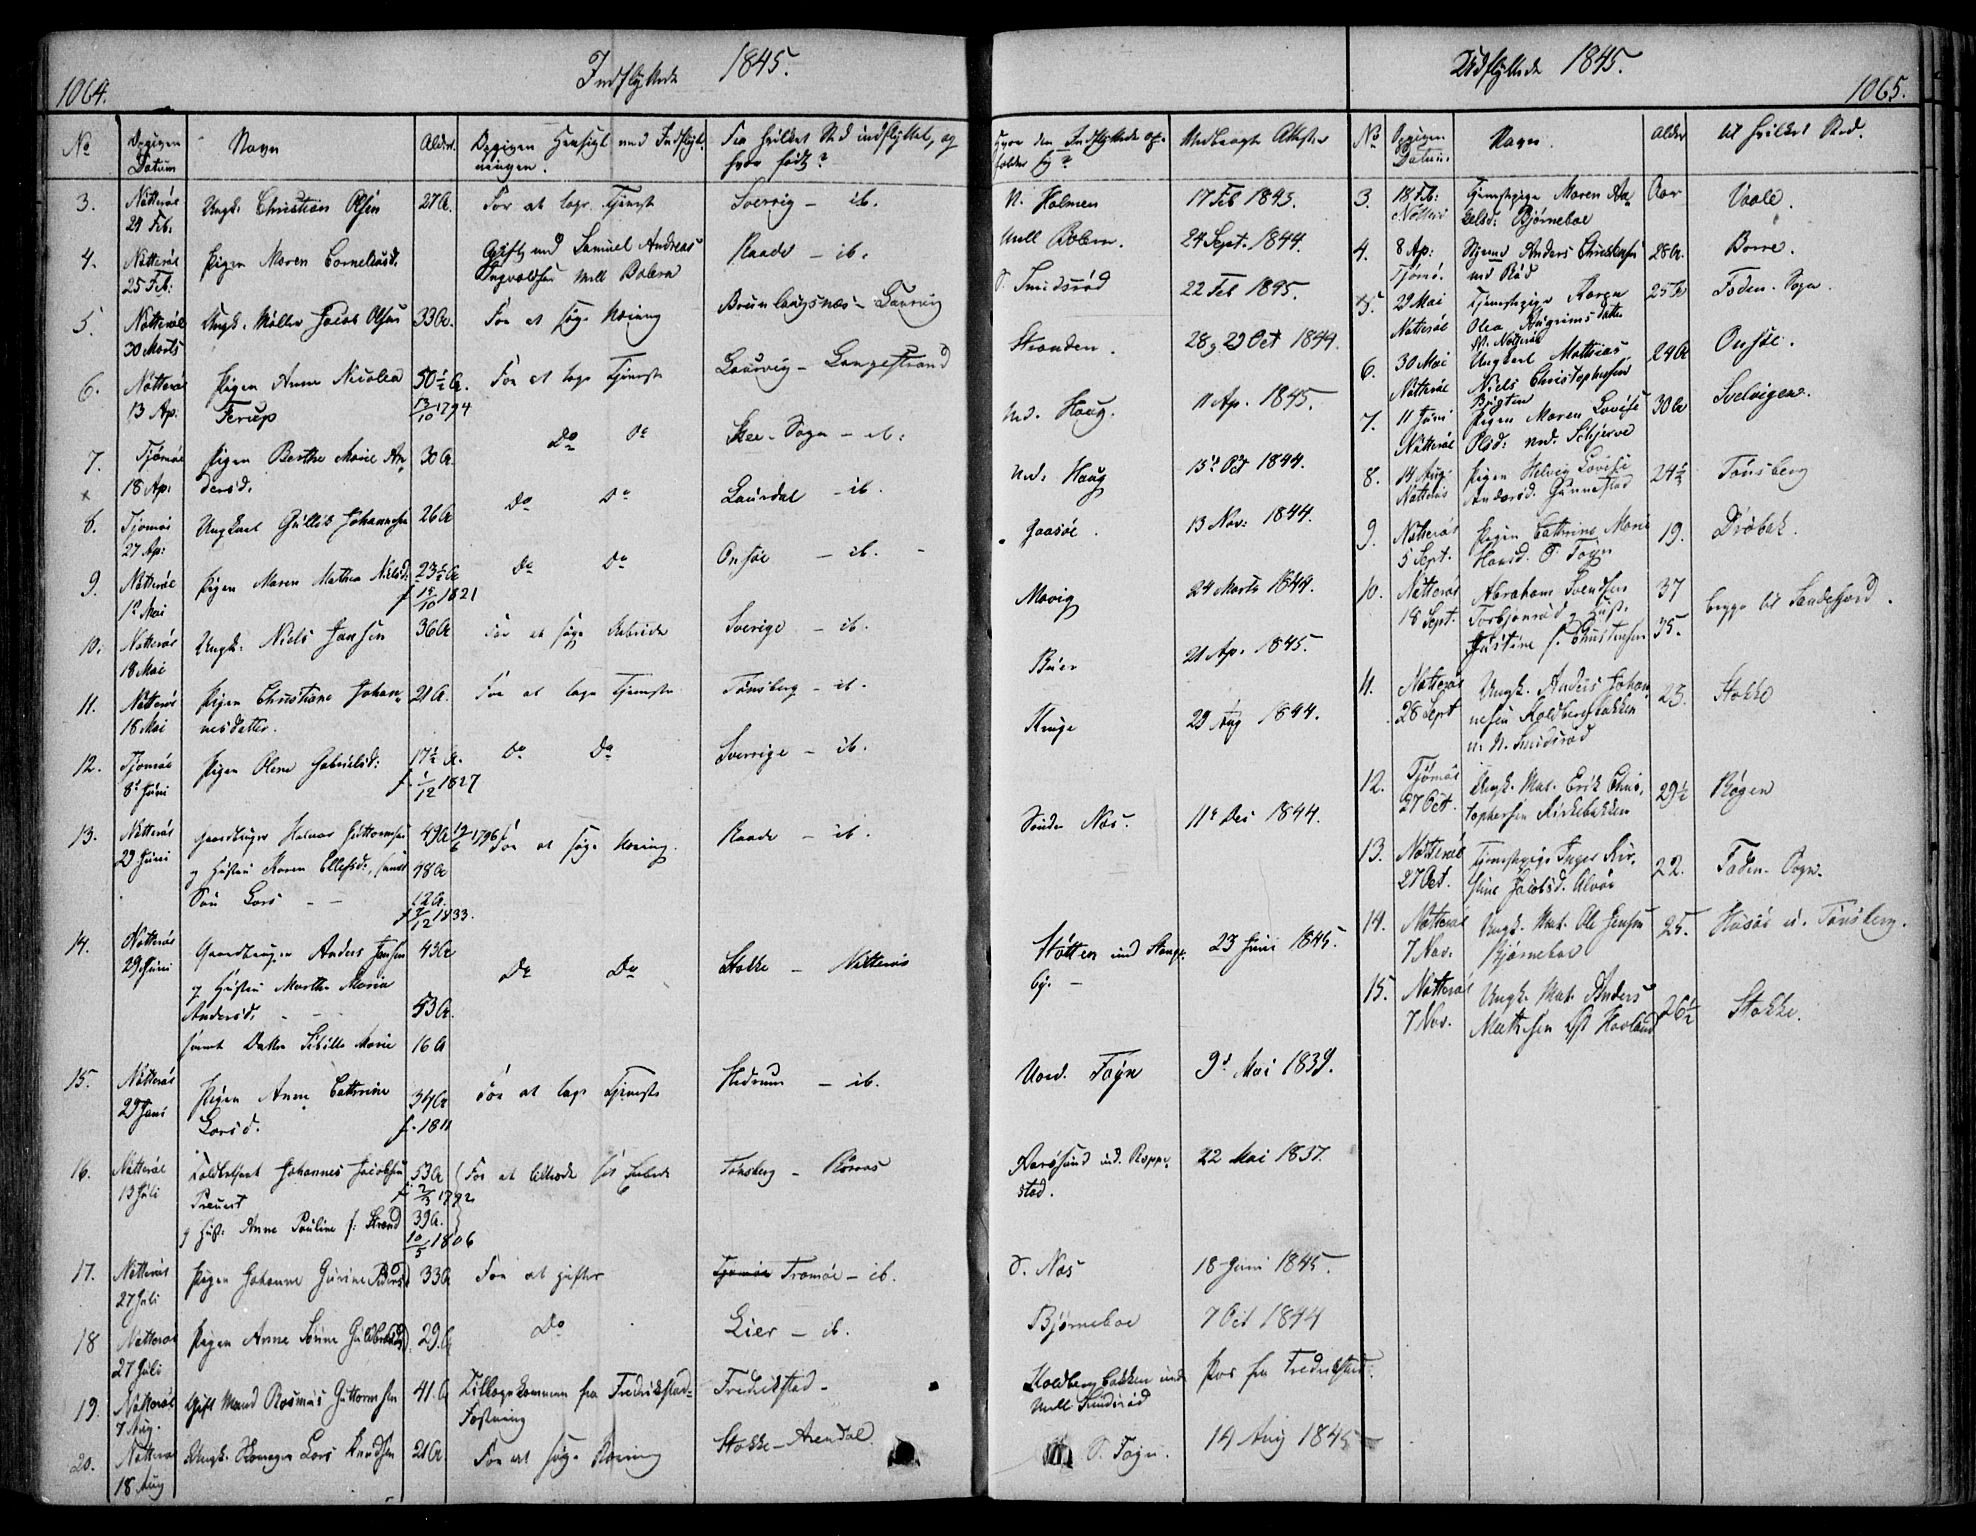 1064.
Indflyttede 1845.
No
Opgiven Datum
Navn
Alder.
Opgiven Hensigt med Indflytningen.
Fra hvilket Sted indflyttet, og hvor født?
Hvor den Indflyttede opholder sig?
Medbragte Attester
3. Nøtterøe 24 Feb. Ungk. Christian Olsen 27 A. For at tage Tjeneste Sverrig – ib. N. Holmen 17 Feb 1843.
4. Nøtterøe 25 Feb: Pigen Maren Corneliusd. Gift med Samuel Andreas Ingvaldsen Mell Bolern Raade – ib. Mell Bolern. 24 Sept. 1844.
5. Nøtterøe 30 Marts Ungk. Møller Jacob Olsen 33 A. For at søge Næring Brunlaugsnæs – Laurvig S. Smidsrød 22 Feb 1845.
6. Nøtterøe 13 Ap: Pigen Anne Nicolea Ferup 50 1/2 A. 13/10 1794 For at tage Tjeneste Laurvig – Langestrand Stranden. 28 g 29 Oct 1844.
7. Tjømøe 18 Ap: Pigen Berthe Marie Andersd. 30 A. Do Do Skee-Sogn – ib: Nd. Haug. 11 Ap. 1845.
8. Tjømøe 27 Ap: Ungkarl Gullik Johannesen 26 A Do Do Laurdal – ib. Nd. Haug 15de Oct 1844.
9. Nøtterøe 1ste Mai Pigen Maren Mathea Nielsd. 23 1/2 A f 15/10 1821 Do Do Onsøe – ib. Gaasøe. 13 Nov: 1844.
10. Nøtterøe 18 Mai Ungk. Niels Jansen 36 A For at søge Arbeide Sverige – ib. Mavig 24 Marts 1844.
11. Nøtterøe 18 Mai Pigen Christiane Johannesdatter. 21 A. For at tage Tjeneste Tønsberg – ib. Buer 21 Ap. 1845.
12. Tjømøe 8de Juni Pigen Olene Gabrielsd: 17 1/2 A. f 1/12 1827 Do Do Sverrige – ib. Kruge 29 Aug 1844.
13. Nøtterøe 29 Juni Gaardbruger Halvor Guttormsen 49 A 19/6 1796 og Hustru Karen Ellefsd:, samt 48 A Søn Lars – – 12 A. f 9/12 1833. For at søge Næring. Raade – ib. Søndre Næs. 11te Dec 1844.
14. Nøtterøe 29 Juni Gaardbruger Anders Jansen 43 A og Hustru Marthe Maria Andersd. – – 53 A. samt Datter Sibille Marie 16 A Do Do Stokke – Nøtterøe Støtten und Stangeby. – 23 Juni 1845.
15. Nøtterøe 29 Juni Pigen Anne Cathrine Larsd. 34 A f. 1811 For at tage Tjeneste Hedrum – ib. Nord. Føyn 9de Mai 1839.
16. Nøtterøe 13 Juli Toldbetjent Johannes Jacobsen Preuert 53 A f 2/3 1792 og Hust. Anne Pauline f: Strand 39 A. 10/5 1806 For at tiltræde sit Embede Tønsberg – Røraas Aarøsund nd. Roppestad. 22 Mai 1837.
17. Nøtterøe 27 Juli Pigen Johanne Gurine Pedersd 33 A For at giftes Tjømøe Tromøe – ib. S. Næs 18 Juni 1845.
18 Nøtterøe 27 Juli Pigen Anne Sørine Guldbrandsd. 29. A Do Lier – ib. Bjørneboe 7 Oct 1844
19. Nøtterøe 7 Aug. Gift Mand Rasmus Guttormsen 41. A Tilbagekommen fra Fredrikstad Festning Fredrikstad – Koldbergbakken und Mell Smidsrød Pas fra Fredrikstad.
20. Nøtterøe 18 Aug Ungk. Lars Knudsen 21 A For at søge Næring Stokke – Arendal. S. Føyn. 14 Aug 1845
Udflyttede 1845.
1065.
No
Opgiven Datum.
Navn.
Alder
til hvilket Sted.
3. 18 Feb: Nøtterø Tjenestepige Maren Axelsd: Bjørneboe Vaale.
4. 8 Ap: Tjømø. Anders Christensen nd Rød 28 A. Borre.
5. 29 Mai Nøtterøe Tjenestepige Karen Olea Anfrimsdatter N. Nøtterøe 25 A Foden-Sogn
6. 30 Mai Nøtterøe Ungkarl Mathias Niels Christophersen Bugten 24 A Onsøe.
7. 11 Juni Nøtterøe Pigen Maren Lovise Olsd: nd. Schjerve 30 A Svelvigen.
8. 14 Aug. Nøtterøe Pigen Helvig Lovise Andersd. Gunnestad 24 1/2 Tønsberg
9. Nøtterøe 5 Sept. Pigen Cathrine Marie Hansd. S. Føyn 19. Drøbak.
10. Nøtterøe 18 Sept. Abraham Svendsen Torbjønrød g Hust. Justine f. Christensen 37 35. begge til Sandefjord.
11. Nøtterøe 28 Sept Ungk. Anders Johannesen Koldbergbakken u. N. Smidsrød 23. Stokke
12. Tjømøe 27 Oct. Ungk. Mat. Erik Christophersen Kirkebakken 29 1/2 Røgen
13. Nøtterøe 27 Oct. Tjenestepige Inger Kirstine Jacobsd. Alvøe 22. Foden-Sogn.
14. Nøtterøe 7 Nov. Ungk. Mat. Ole Jensen Bjørneboe 25. Husøe v. Tønsberg.
15. Nøtterøe 7 Nov. Ungk. Mat. Anders Mathisen Øst Havland 26 1/2 Stokke.